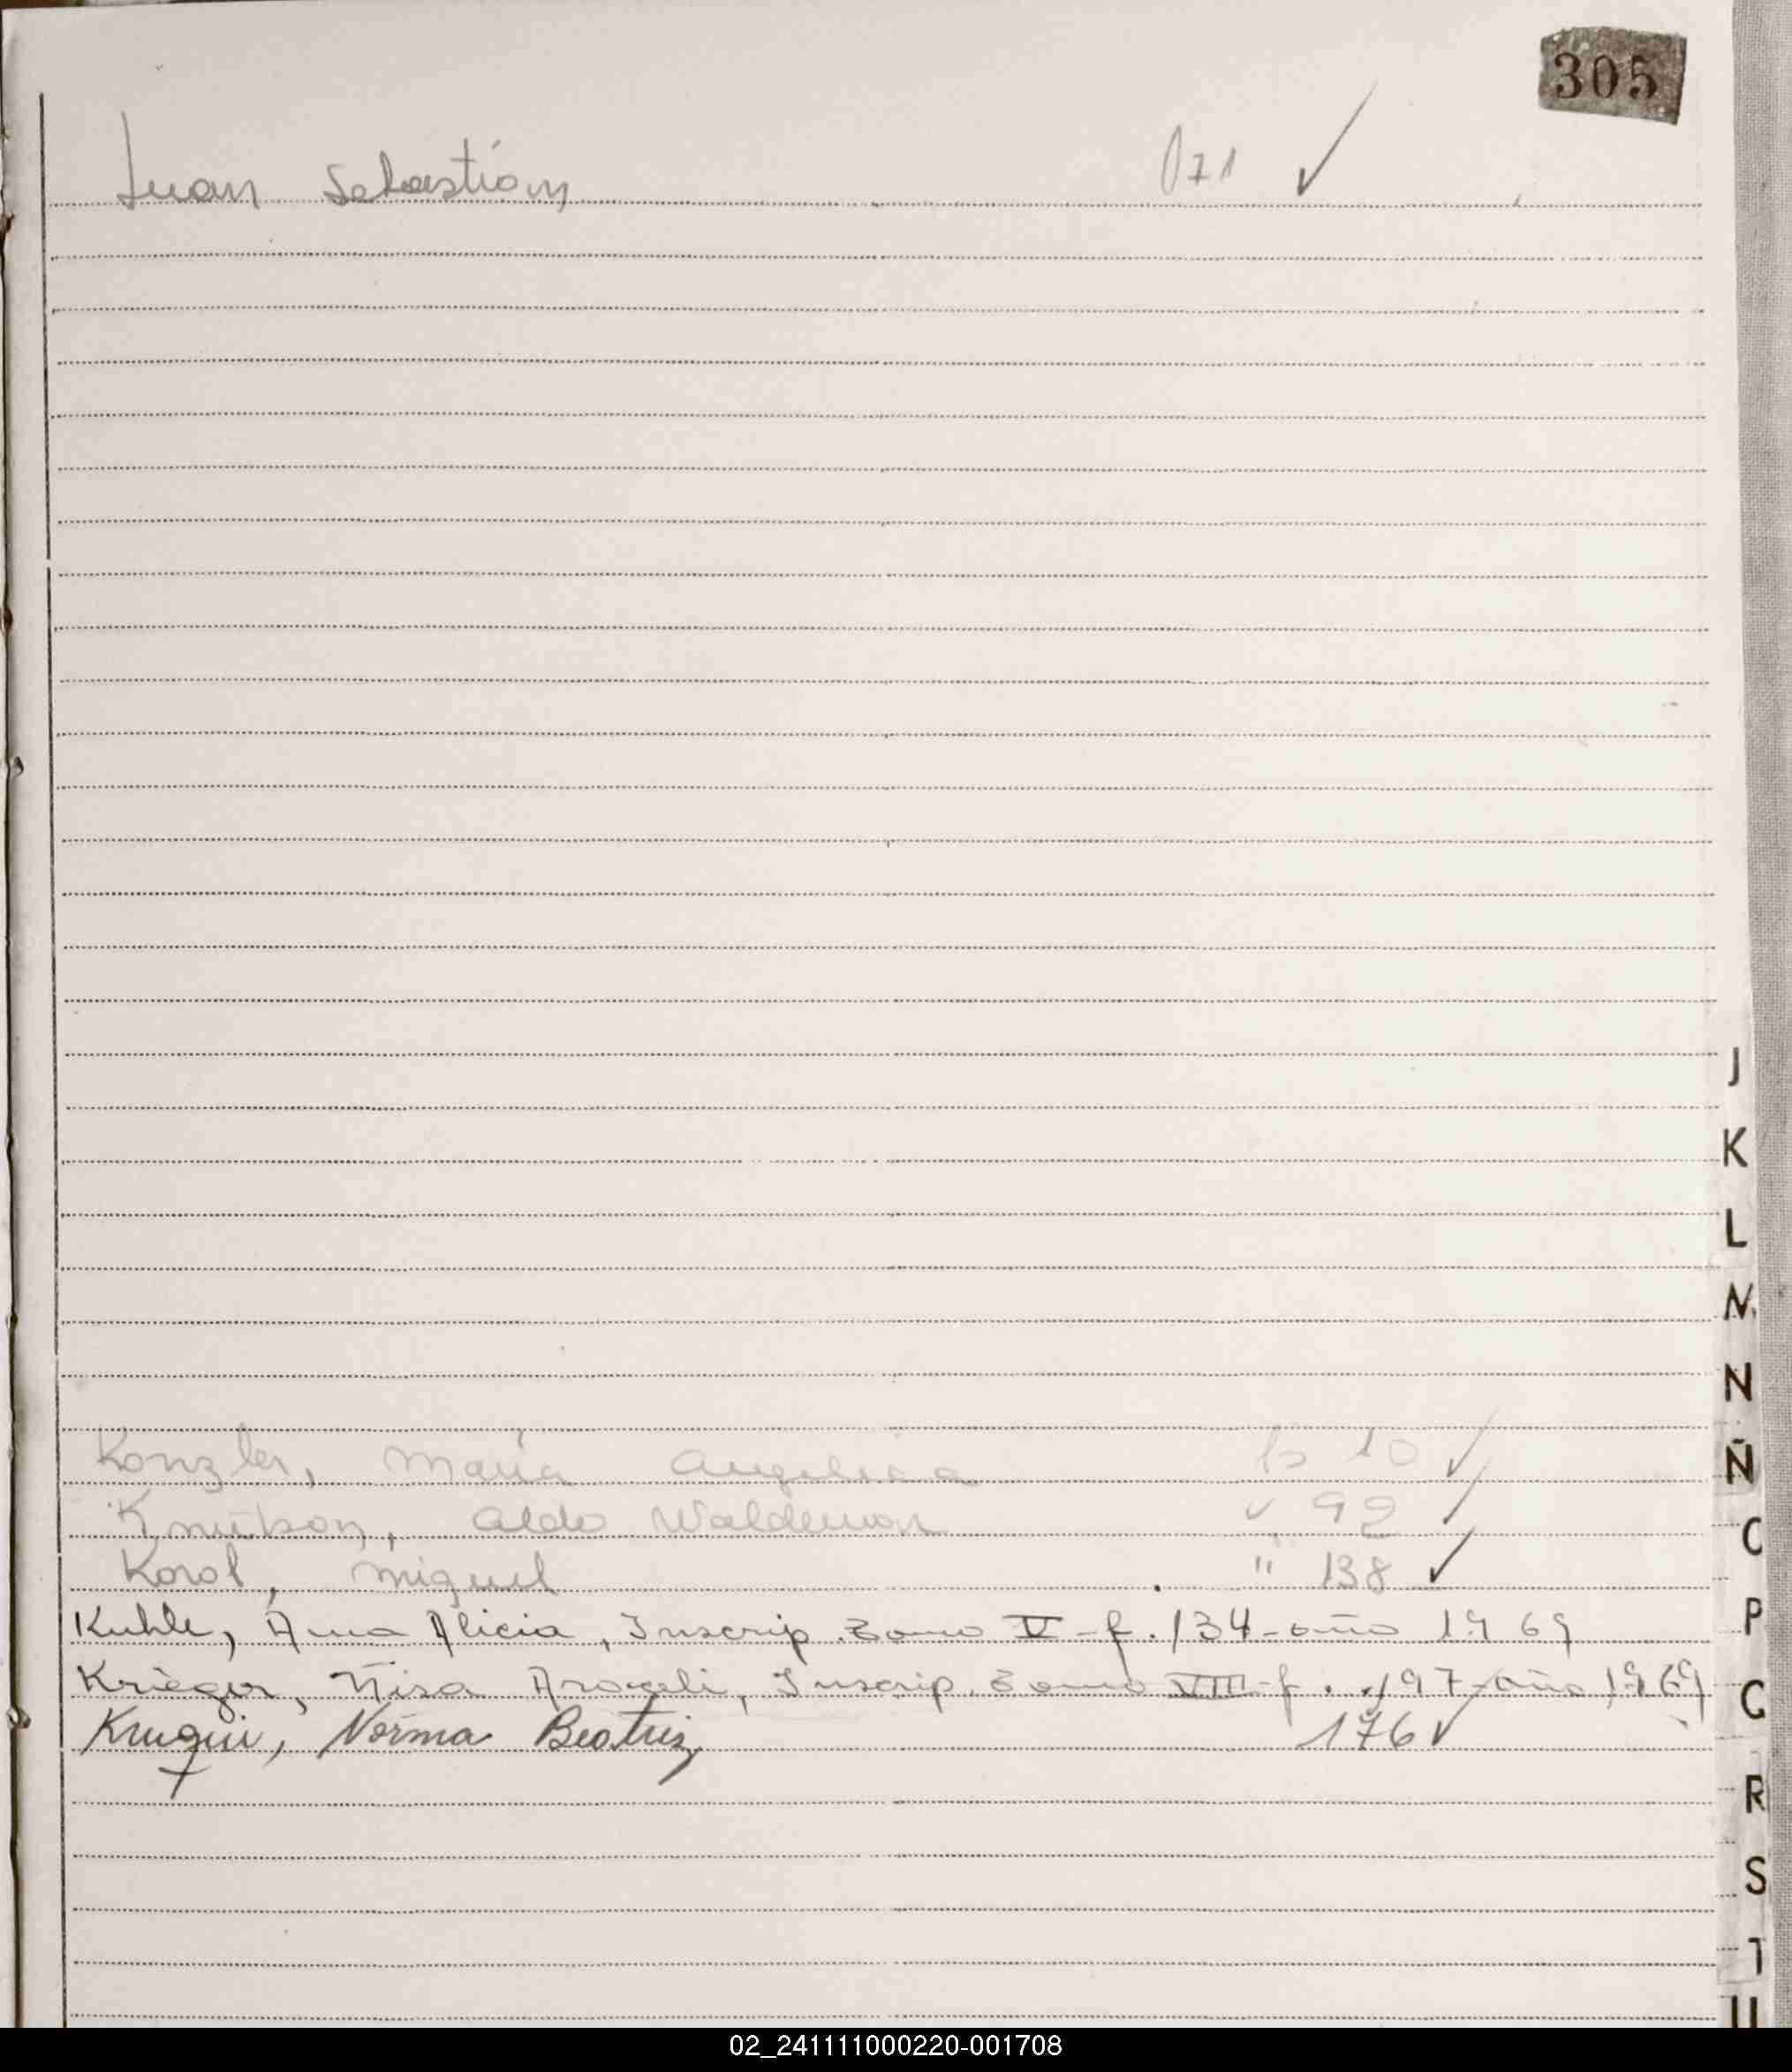 305
Juan Sebastián 071 ✓
J
K
L
M
N
Konzler, María Angelica fs 10 ✓
Ñ
Knutson, Aldo Waldemar " 92 ✓
O
Korol, Miguel " 138 ✓
Kuhle, Ana Alicia, Inscrip. Tomo V - f. 134 - año 1969
P
Krieger, Nisa Araceli, Inscrip. Tomo VIII - f. 197 - año 1969
G
Norma Beatriz 176 ✓
R
S
T
U
02_241111000220-001708